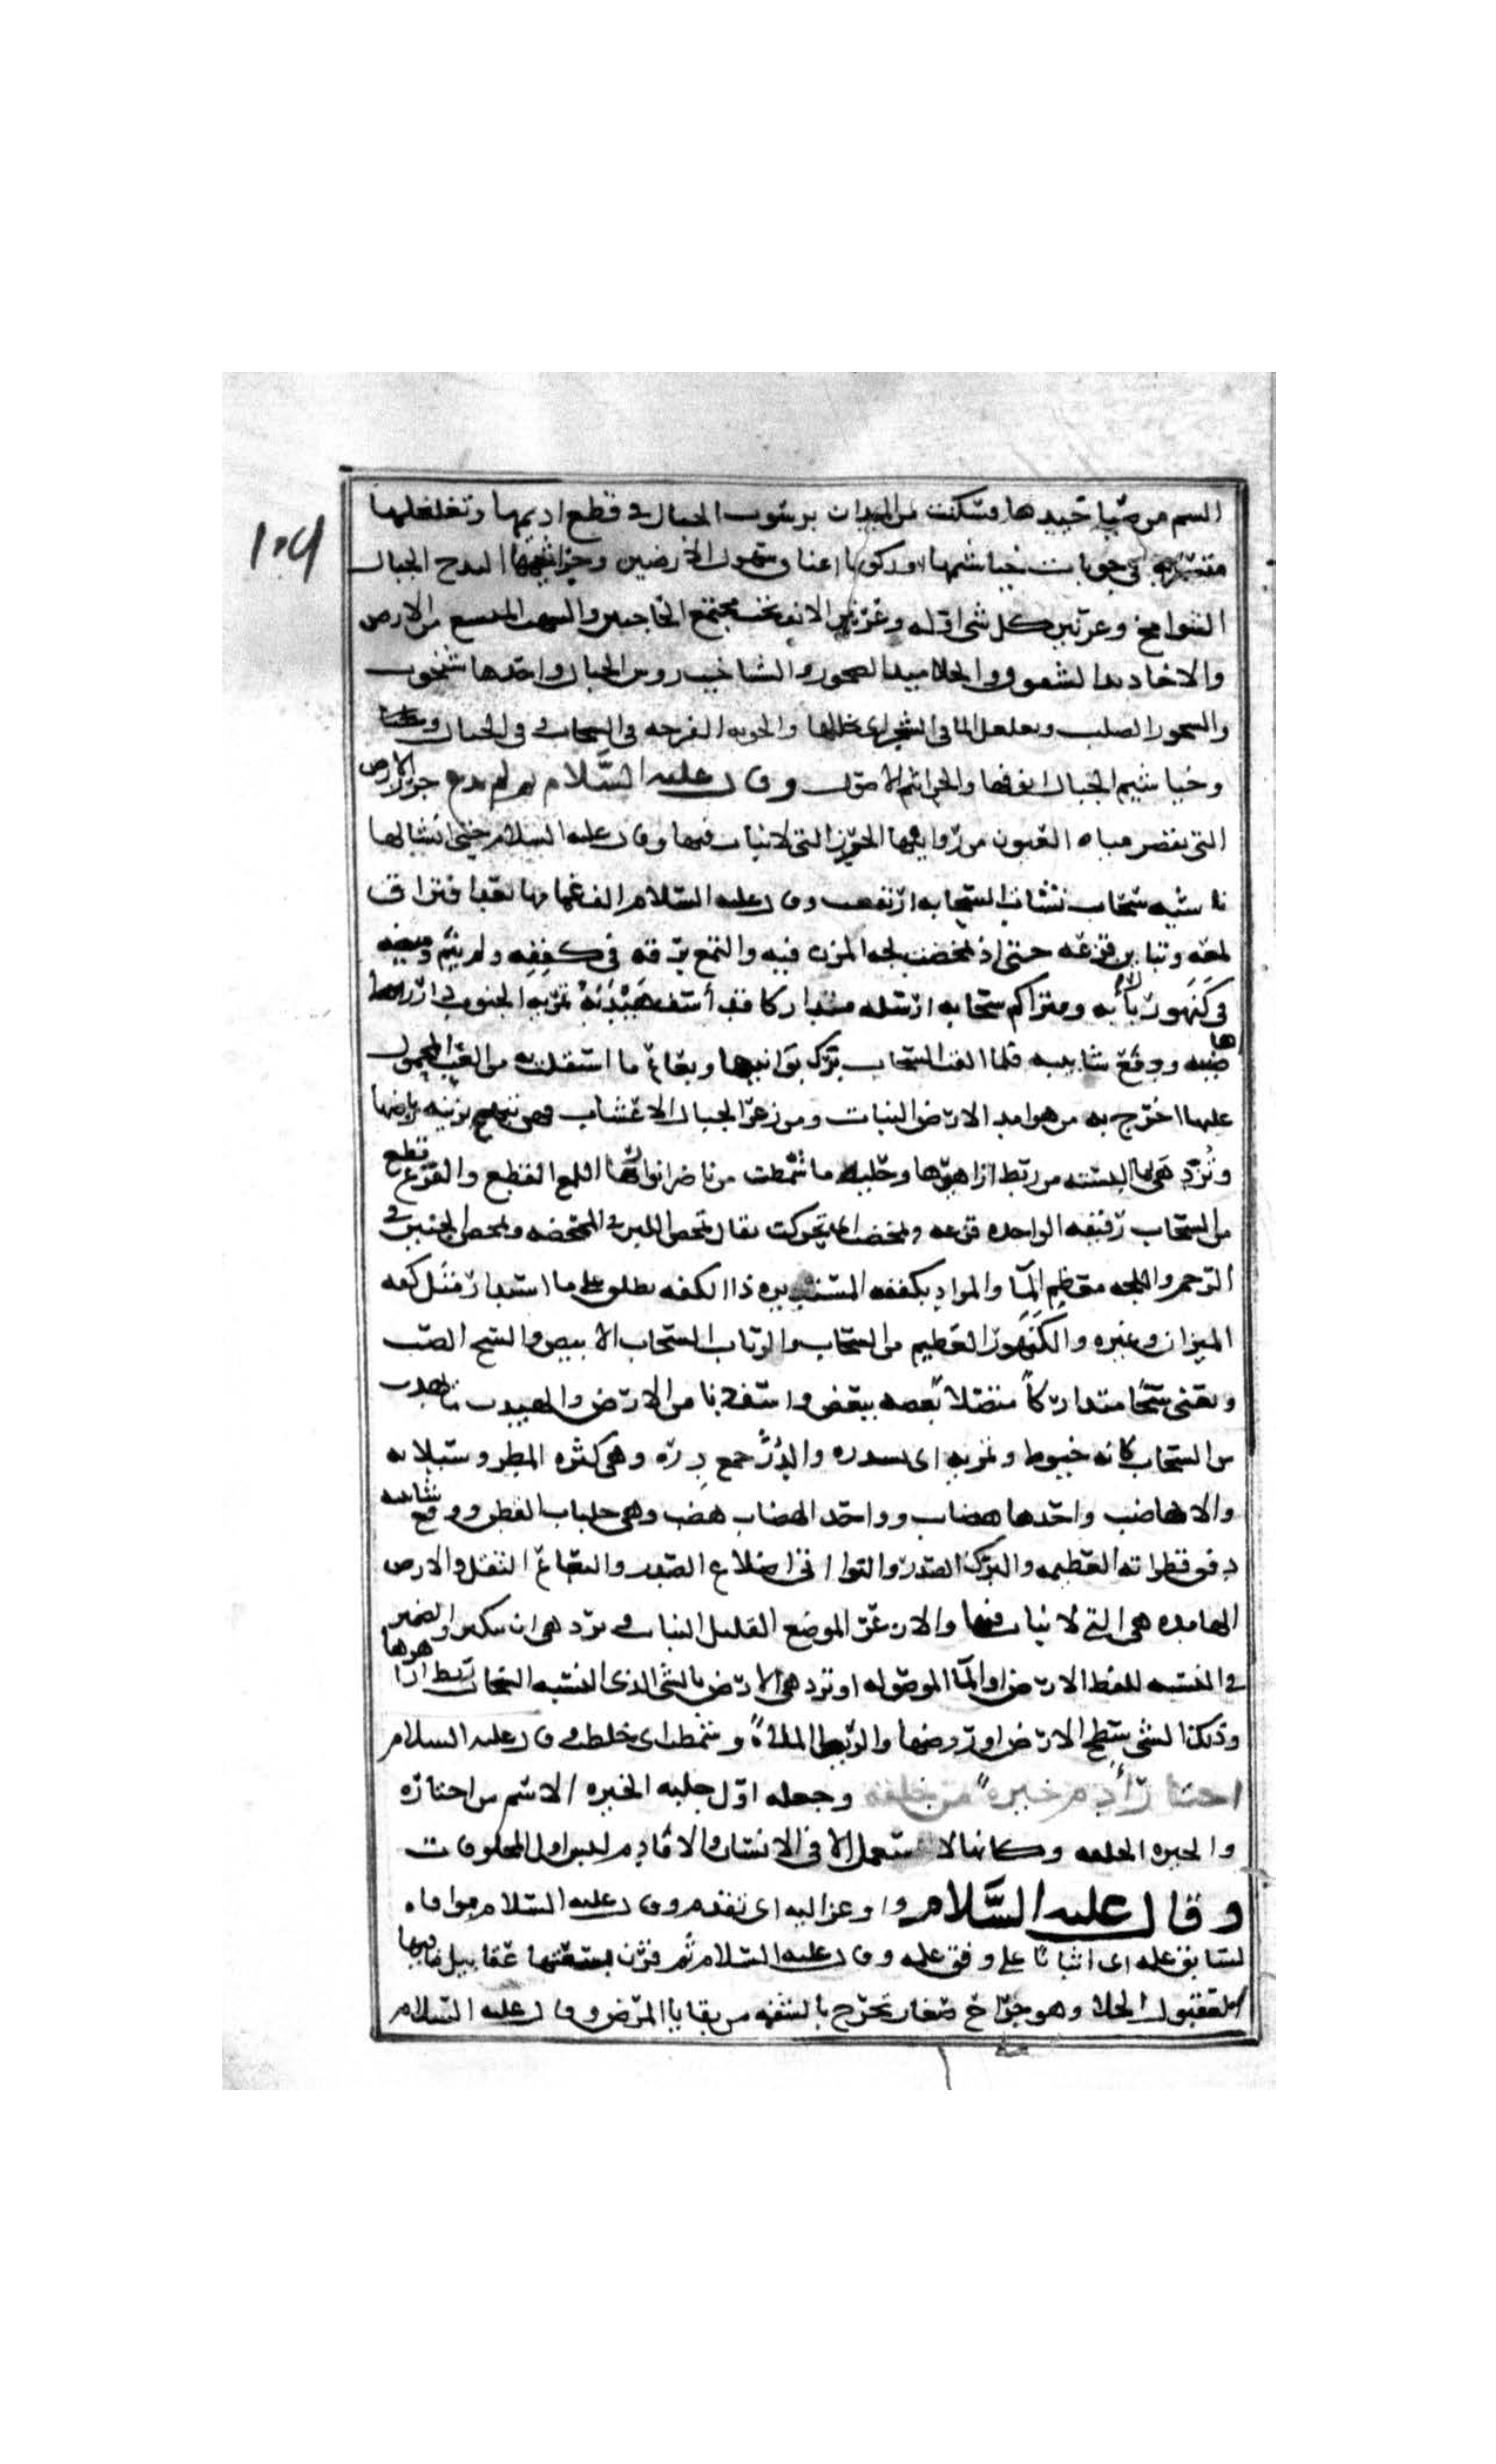 الشم من صياخيدها فسكنت من الميدان برسوب الجبال في قطع اديمها وتغلغلها
متسربة في جوبات خياشيمها وركوبها اعناق سهول الارضين وجراثيمها البدح الجبال
الشوامخ وعرنين كل شي اوله وعرنين الانف تحت مجتمع الحاجبين والسهب المتسع من الارض
والاخاديد الشقوق والجلاميد الصخور والشناخيب روس الجبال واحدها شنخوب
والصخور الصلب وتغلغل الما في الشجر اي تخللها والجوبه الفرجه في السحاب وفي الجبال
وخياشيم الجبال انوفها والجراثيم الاصول وقال عليه السَّلام ثم لم يدع جرز الارض
التي تقصر مياه العيون من روابيها الجرز التي لا نبات فيها وقال عليه السلام حتى انشا لها
ناشيه سحاب نشات السحابه ارتفعت وقال عليه السلام الف غمامها بعد افتراق
لمعه وتباين قزعه حتى اذ تمخضت لجه المزن فيه والتمع برقه في كففه ولم ينم وميضه
في كَنَهور ربابه ومتراكم سحابه ارسله سحا متداركا قد أسف هَيْدَبُهُ تمريه الجنوب درر اها
ضيبه ودفع شابيبه فلما القت السحاب برك بوانيها وبعاع ما استقلت به من العب المحمول
عليها اخرج به من هوامد الارض النبات ومن زعر الجبال الاعشاب فهي تبهج بزينه رياضها
وتُزدهى بما البسته من ريط ازاهيرها وحليه ما شمطت من ناضر انوارها اللمع القطع والقزع قطع
من السحاب رقيقه الواحده قزعه وتمخضت اي تحركت يقال تمخص اللبن في الممخضه وتمخص الجنين في
الرحم واللجه معظم المآ والمراد بكففه المستديره ذا الكفه يطلق على ما استدار مثل كفه
الميزان وغيره والكَنَهور العظيم من السحاب والرباب السحاب الابيض والسح الصب
ويعني سحًا متداركاً متصلاً بعضه ببعض واسف دنا من الارض والهيدب ما تهدب
من السحاب كانه خيوط وتمريه اى يستدره والدِرَر جمع دِرّه وهي كثره المطر وسيلانه
والاهاضب واحدها هضاب وواحد الهضاب هضب وهي حلبات القطر ودفع شابيبه
دفق قطراته العظيمه والبرك الصدر والبوانى اضلاع الصدر والبعاع الثقل والارض
الهامده هي التي لا نبات فيها والازعر الموضع القليل النبات و تزدهي ان يكون الضمير
في البسته للفظ الارض او الما الموصوله او تزدهى الارض بالشي الذي البسته السحاب ريط ازاهيرها
وذلك الشي سطح الارض او روضها والريط الملاة وشمطت اي خلطت وقال عليه السلام
اختار آدم خيره من خلقه وجعله اول جبله الخيره الاسم من اختاره
والجبره الخلقه وكانها لا تستعمل الا في الانسان والا فادم ليس اول المخلوقات
وقال عليه السَّلام واوعز اليه اى تقدم وقال عليه السلام موافاه
لسابق علمه اى اتيانا على وفق علمه وقال عليه السلام ثم قرن بسعتها عقابيل فاقتها
العقبول الحلا وهو جراح صغار تخرج بالشفه من بقايا المرض وقال عليه السلام